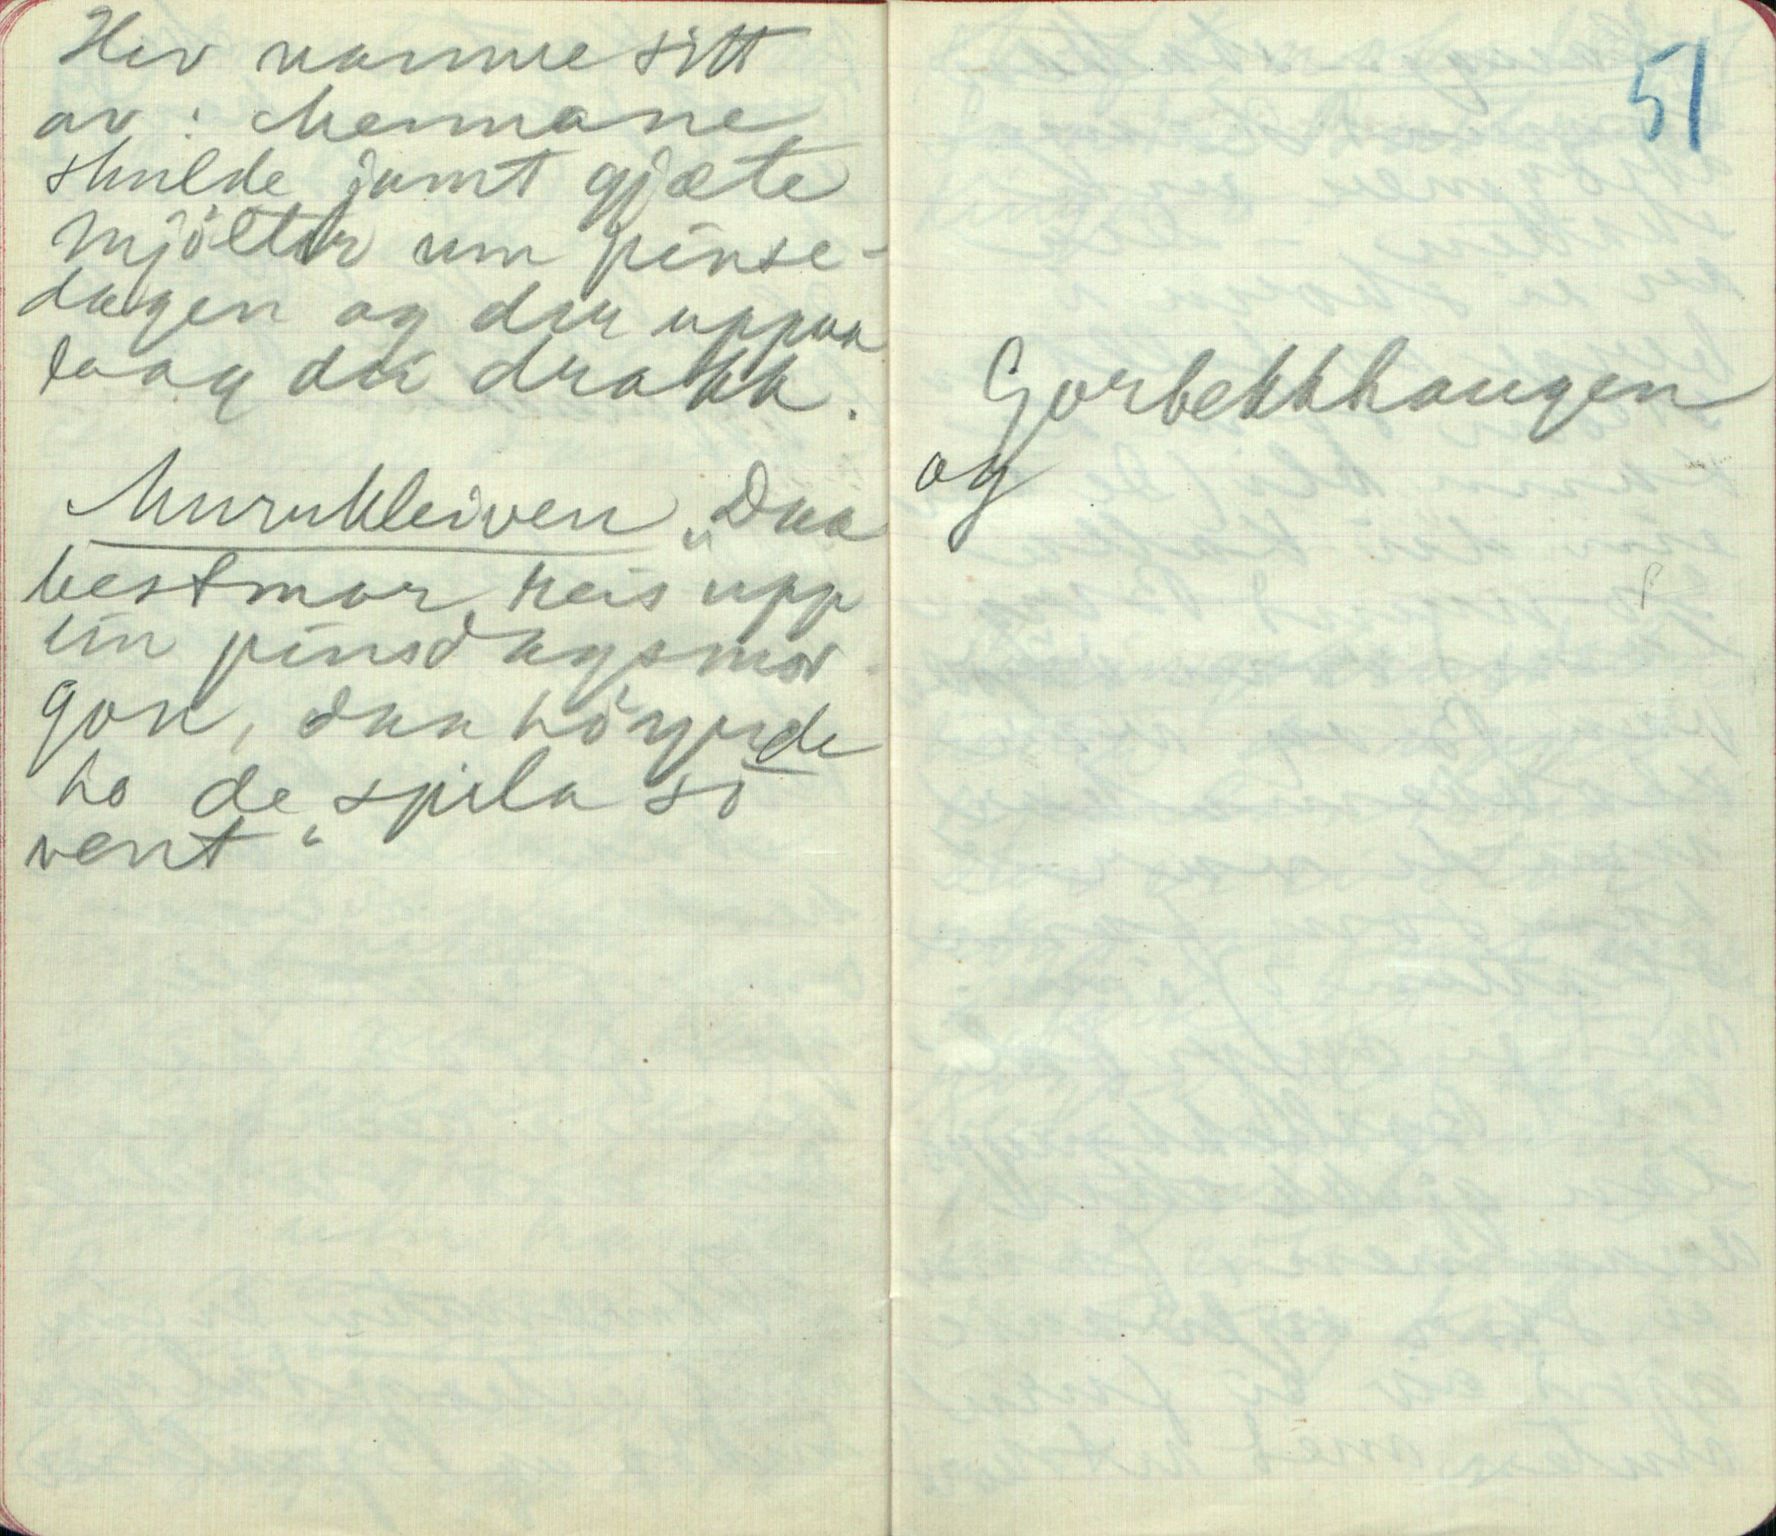 Hev namne sitt
av: Mennane
skulde jamt gjæte
Mjöltir um pinse-
dagen og der uppaa
laag dei drakk.
Murukleiven "Daa
bestmor reis upp
ein pinsdagsmor-
gon, daa höyrde
ho de spela so
vent"
51
Gorbekkhaugen
og